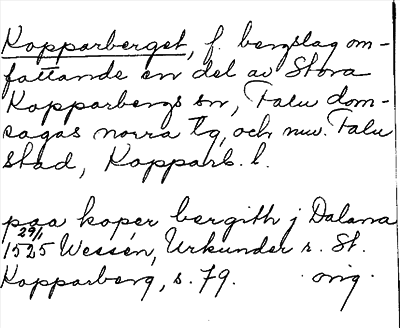 Kopparberget, f. bergslag om-
fattande en del av Stora
Kopparbergs sn, Falu dom-
sagas norra tg, och nuv. Falu
stad, Kopparb. l.
paa koper bergith j Dalana
29/1 1525 Wessén, Urkunder r. St.
Kopparberg, s. 79. orig.